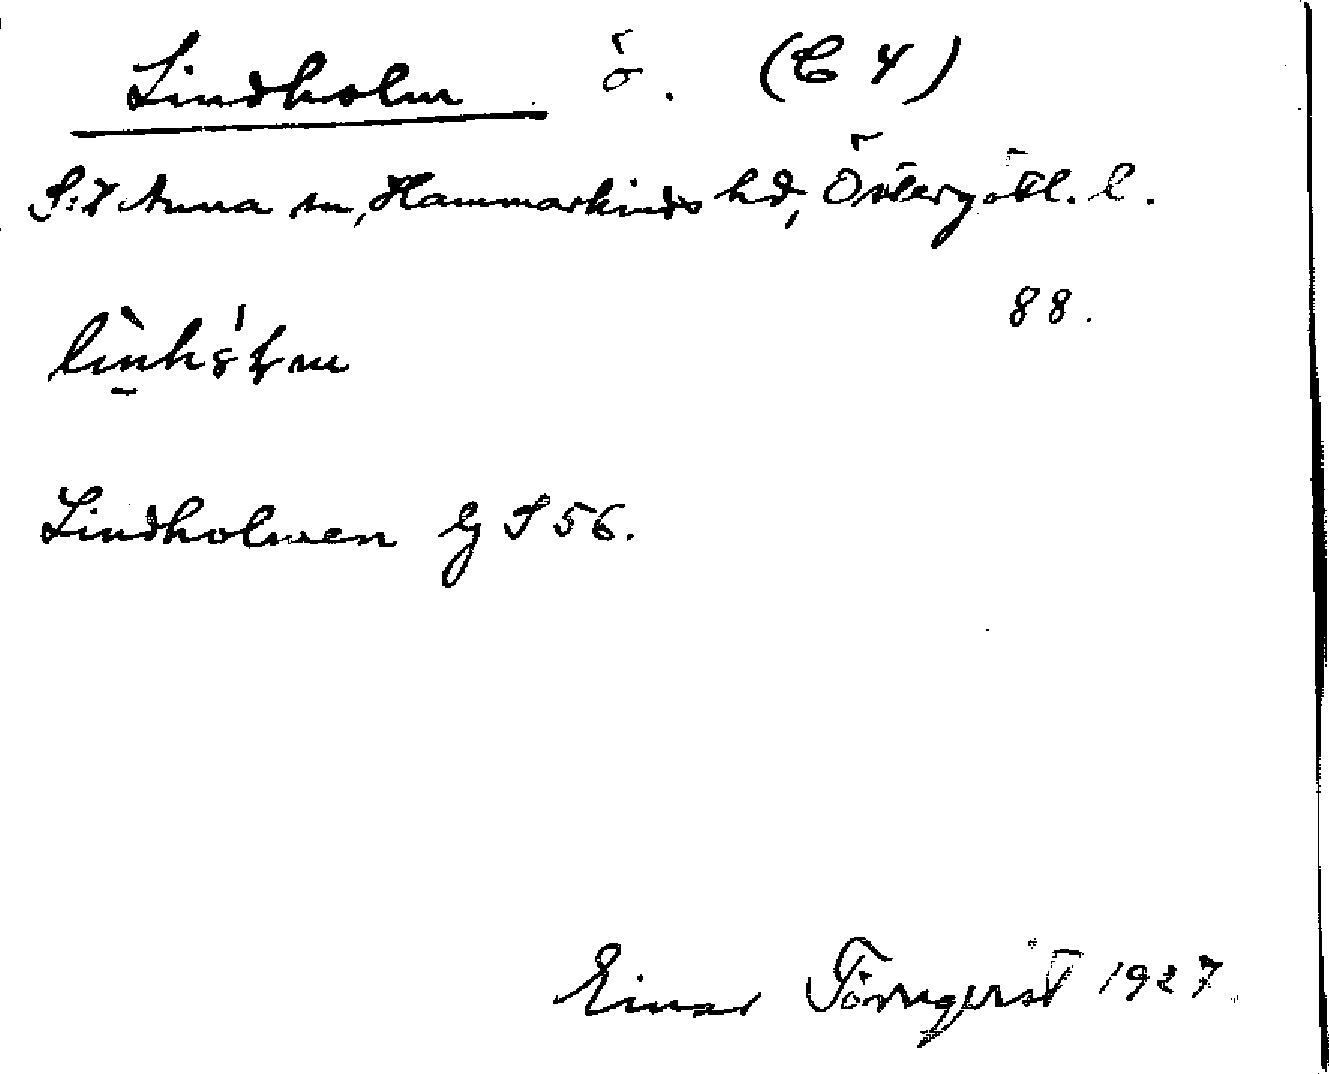 Lindholm ö. (C 4)
S:t Anna sn, Hammarkinds hd, Östergötl. l.
88.
Lindholmen Gg S 56.
Einar Törnqvist 1927